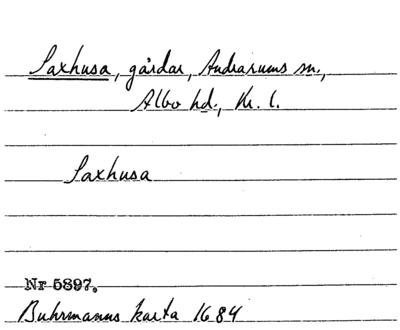 Saxhusa, gårdar, Andrarums sn.,
Albo hd., Kr. l.
Saxhusa
Nr 5897.
Buhrmanns karta 1684